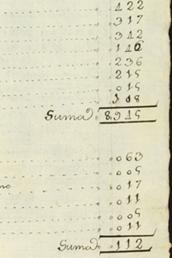 422
317
342
146
236
215
015
108
Suma 8915
063
005
017
011
005
011
Suma 112